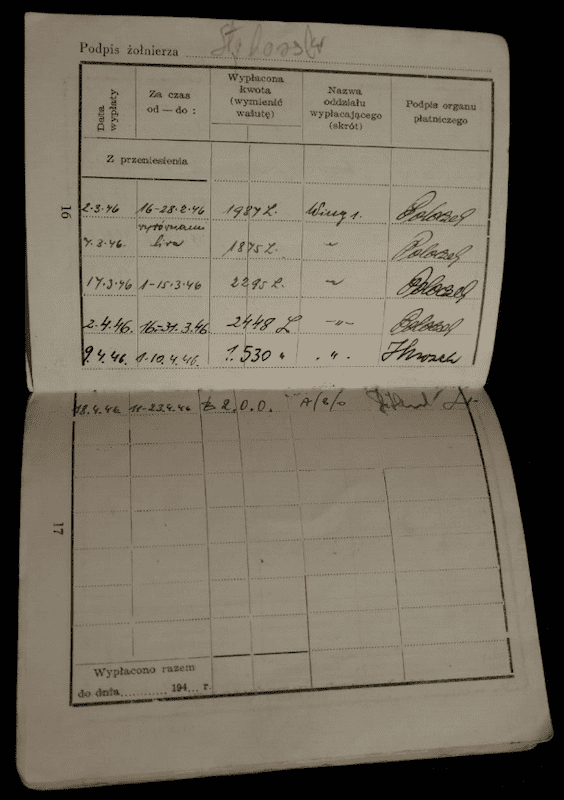 Podpis żołnierza
Data wypłaty
Za czas od — do :
Wypłacona kwota (wymienić walutę)
Nazwa oddziału wypłacającego (skrót)
Podpis organu płatniczego
Z przeniesienia
16
2.3.46 16-28.2.46 1987 L.
7.3.46. 1875 L. "
17.3.46 1-15.3.46 2295 L. "
2.4.46. 16-31.3.46 2448 L -"-
9.4.46. 1-10.4.46. 1.530 " . " .
18.4.46 11-23.4.46
17
Wypłacono razem
do dnia............ 194.... r.